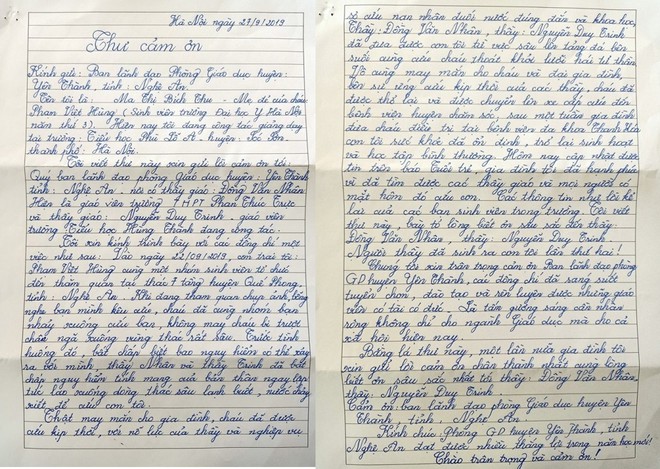 Hà Nội ngày 27/9/2019
Thư cảm ơn
Kính gửi: Ban lãnh đạo Phòng Giáo dục huyện:
Yên Thành, tỉnh: Nghệ An.
Tên tôi là: Ma Thị Bích Thu - Mẹ đẻ của cháu
Phạm Viết Hùng (Sinh viên trường Đại học Y Hà Nội
năm thứ 3). Hiện nay tôi đang công tác giảng dạy
tại trường: Tiểu học Phú Lỗ A. huyện: Sóc Sơn.
thành phố: Hà Nội.
Tôi viết thư này xin gửi lời cảm ơn tới:
Quý ban lãnh đạo phòng Giáo dục huyện: Yên Thành
tỉnh: Nghệ An. nơi có thầy giáo: Đồng Văn Nhân
Hiện là giáo viên trường THPT Phan Thúc Trực
và thầy giáo: Nguyễn Duy Trinh. giáo viên
trường Tiểu học Hùng Thành đang công tác.
Tôi xin kính trình bày với các đồng chí một
việc như sau: Vào ngày 22/09/2019, con trai tôi:
Phạm Viết Hùng cùng một nhóm sinh viên tổ chức
đến thăm quan tại thác 7 tầng huyện Quế Phong.
tỉnh: Nghệ An. Khi đang tham quan chụp ảnh, bỗng
nghe bạn mình kêu cứu, cháu đã cùng nhóm bạn
nhảy xuống cứu bạn, không may cháu bị trượt
chân ngã xuống vùng thác rất sâu. Trước tình
huống đó, bất chấp biết bao nguy hiểm có thể xảy
ra với mình, thầy Nhân và thầy Trinh đã bất
chấp nguy hiểm tính mạng của bản thân ngay lập
tức lao xuống dòng thác sâu lạnh buốt, nước chảy
xiết để cứu con tôi.
Thật may mắn cho gia đình, cháu đã được
cứu kịp thời, với nỗ lực của thầy và nghiệp vụ
sơ cứu nạn nhân đuối nước đúng đắn và khoa học,
Thầy: Đồng Văn Nhân, thầy: Nguyễn Duy Trinh
đã đưa được con tôi từ vực sâu lên tảng đá bên
suối cùng cứu cháu thoát khỏi lưỡi hái tử thần.
Vô cùng may mắn cho cháu và đại gia đình,
bên sự ứng cứu kịp thời của các thầy, cháu đã
được thở lại và được chuyển lên xe cấp cứu đến
bệnh viện huyện chăm sóc, sau một tuần gia đình
đưa cháu điều trị tại bệnh viện đa khoa Thanh Hóa
con tôi sức khỏe đã ổn định, trở lại sinh hoạt
và học tập bình thường. Hôm nay cập nhật được
tin trên báo Tuổi trẻ, gia đình tôi đã hạnh phúc
vì đã tìm được các thầy giáo và mọi người có
mặt hôm đó cứu con. Các thông tin như lời kể
lại của các bạn sinh viên trong trường. Tôi viết
thư này, bày tỏ lòng biết ơn sâu sắc đến thầy:
Đồng Văn Nhân, thầy: Nguyễn Duy Trinh.
Người thầy đã sinh ra con tôi lần thứ hai!
Chúng tôi xin trân trọng cảm ơn Ban lãnh đạo phòng
GD huyện Yên Thành, các đồng chí đã sáng suốt
tuyển chọn, đào tạo và rèn luyện được những giáo
viên có tài có đức. Là tấm gương sáng cần nhân
rộng không chỉ cho ngành Giáo dục mà cho cả
xã hội hiện nay.
Bằng lá thư này, một lần nữa gia đình tôi
xin gửi lời cảm ơn chân thành nhất cùng lòng
biết ơn sâu sắc nhất tới thầy: Đồng Văn Nhân,
thầy: Nguyễn Duy Trinh.
Cảm ơn ban lãnh đạo phòng Giáo dục huyện Yên
Thành tỉnh: Nghệ An.
Kính chúc Phòng GD huyện Yên Thành, tỉnh
Nghệ An đạt được nhiều thắng lợi trong năm học mới!
Chào trân trọng và cảm ơn!